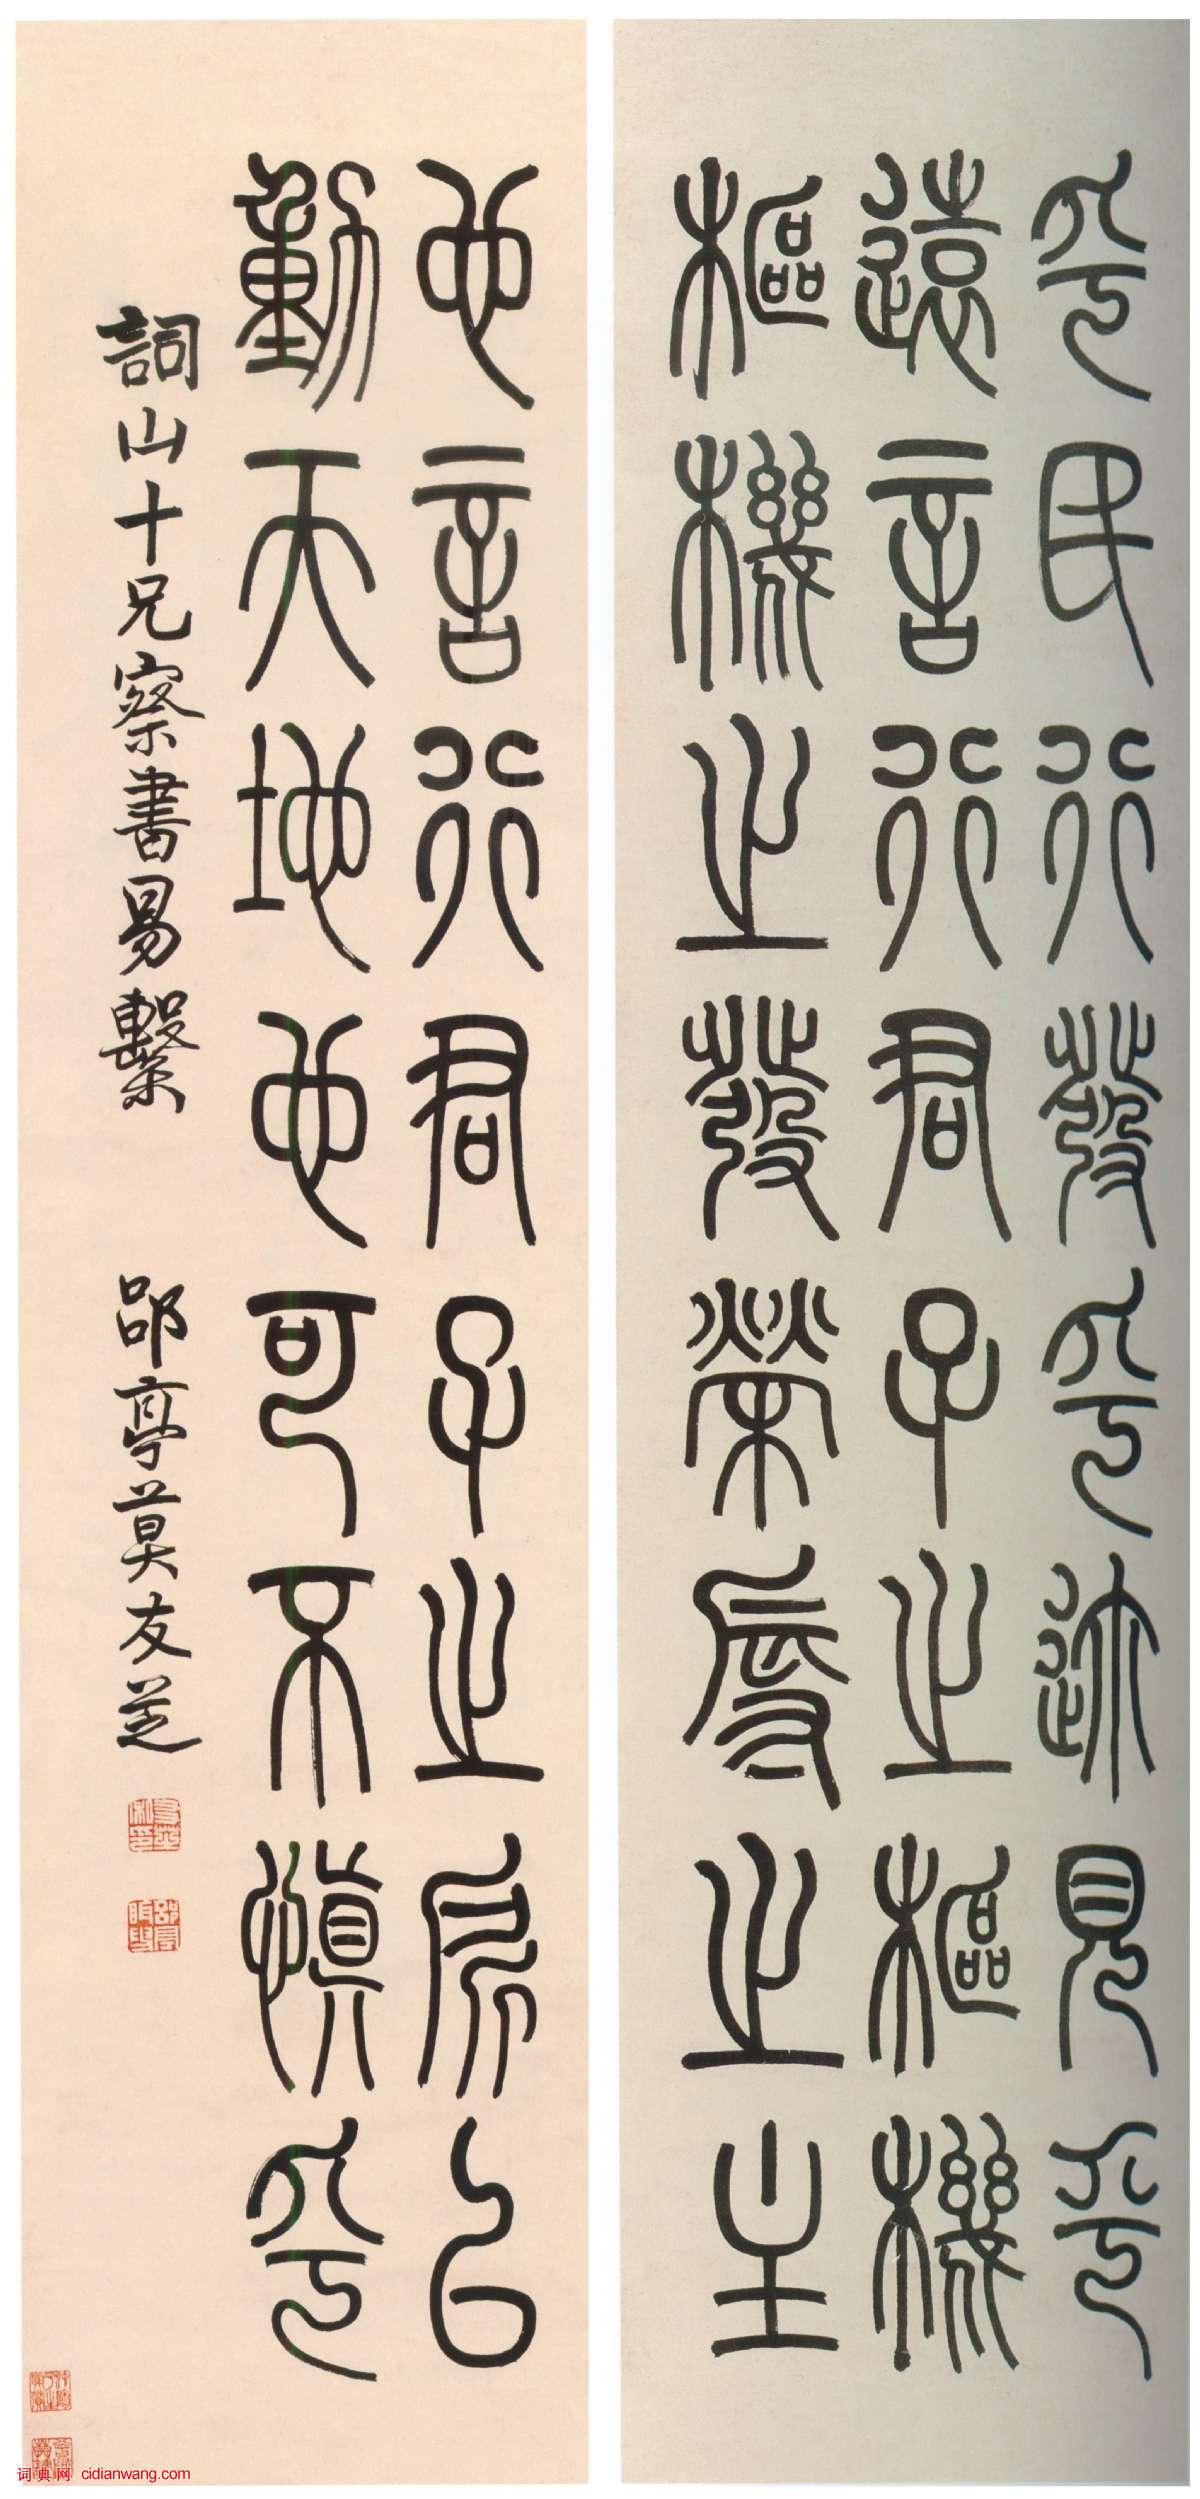 乎民行發乎迩見乎
遠言行君子之樞機
樞機之發榮辱之主
也言行君子之所以
動天地也可不慎乎
詞山十兄察書易繫 郘亭莫友芝
友芝私印
郘亭眲叟
词典网 cidianwang.com